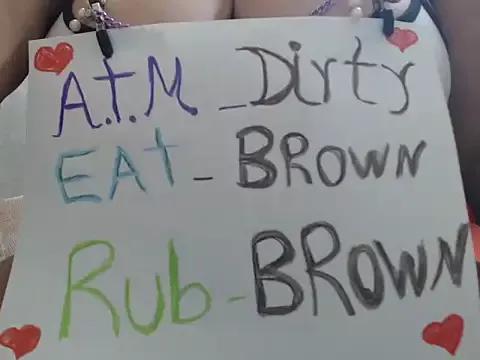 A.t.M_Dirty
EAt-BROWN
Rub-BROWN